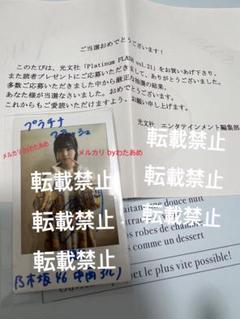 ご当選おめでとうございます！
このたびは、光文社「Platinum FLASH vol.21」をお買いあげ下さり、
また読者プレゼントにご応募いただきまして、ありがとうございます。
多数ご応募いただきました中から厳正な抽選の結果、
あなた様が当選なさいました。おめでとうございます。
これからもご愛読いただけますよう、お願い申し上げます。
光文社 エンタテインメント編集部
プラチナ
フラッシュ
メルカリ byわたあめ
メルカリ byわたあめ
転載禁止
転載禁止
転載禁止
転載禁止
転載禁止
転載禁止
乃木坂46 中西アルノ
une douce nuit
robes de chambre
comme un dessert
le plus vite possible!